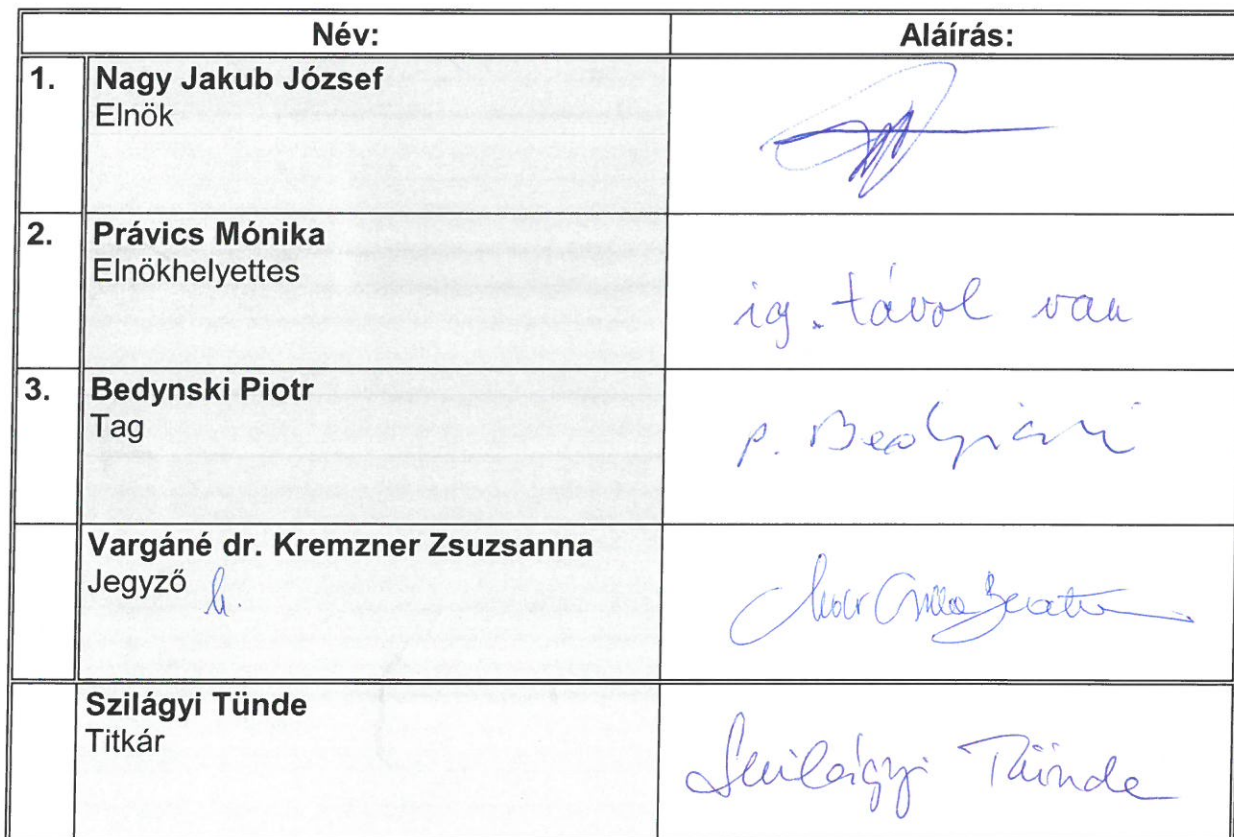 Név: Aláírás:
1. Nagy Jakub József
Elnök
2. Právics Mónika
Elnökhelyettes
ig. távol van
3. Bedynski Piotr
Tag
P. Bedyński
Vargáné dr. Kremzner Zsuzsanna
Jegyző h.
Szilágyi Tünde
Titkár
Szilágyi Tünde